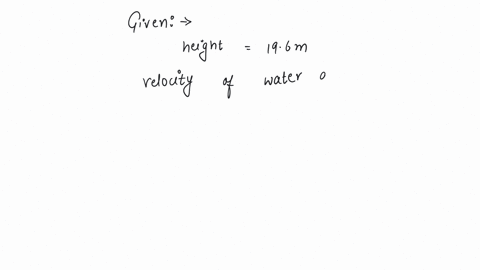 Given:→
height = 19.6m
velocity of water o